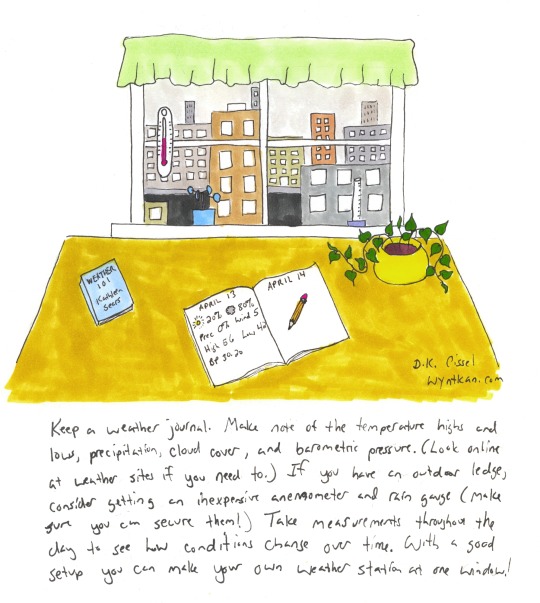 WEATHER
101
Kathleen
Sears
APRIL 13
20% 80%
Prec 0% Wind 5
High 56 Low 42
BP 30.20
APRIL 14
D.K. Cissel
wyntkan.com
Keep a weather journal. Make note of the temperature highs and
lows, precipitation, cloud cover, and barometric pressure. (Look online
at weather sites if you need to.) If you have an outdoor ledge,
consider getting an inexpensive anemometer and rain gauge (make
sure you can secure them!) Take measurements throughout the
day to see how conditions change over time. With a good
setup you can make your own weather station at one window!